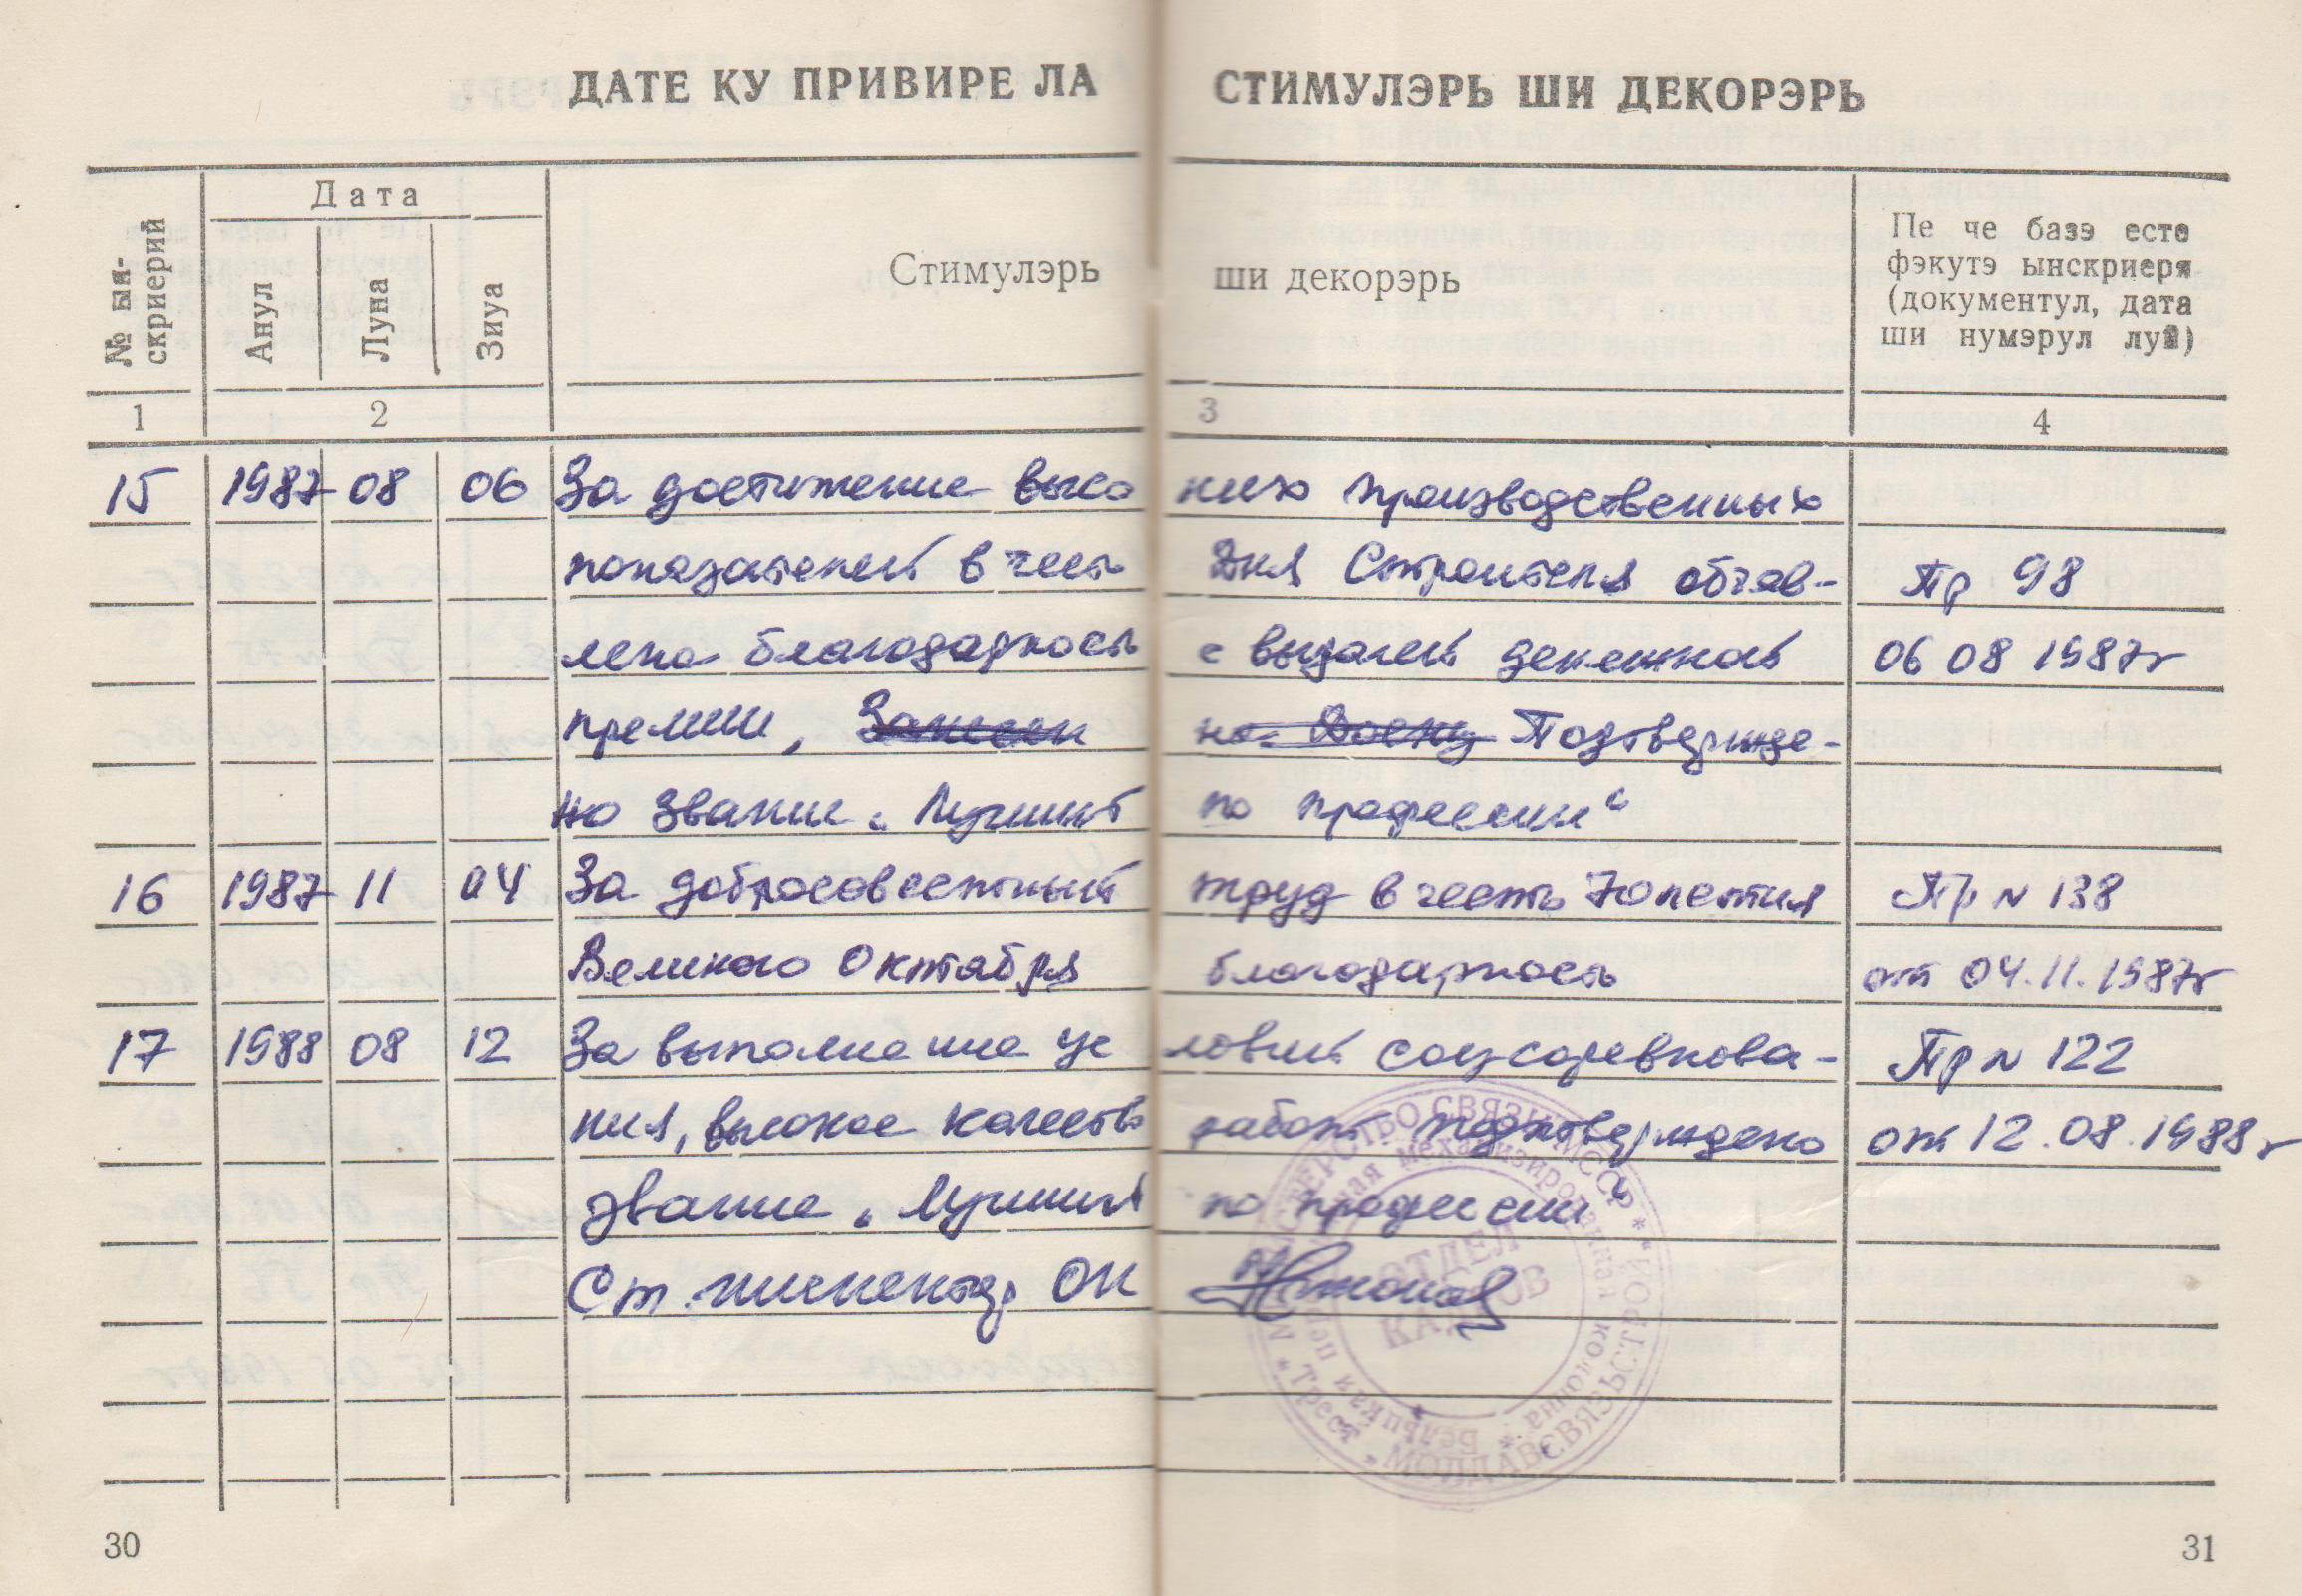 ДАТЕ КУ ПРИВИРЕ ЛА СТИМУЛЭРЬ ШИ ДЕКОРЭРЬ
№ ын-
скриерий
Дата
Анул
Луна
Зиуа
Стимулэрь ши декорэрь
Пе че базэ есте
фэкутэ ынскриеря
(документул, дата
ши нумэрул луй)
1 2 3 4
15 1987 08 06 За достижение высо ких производственных
показателей в честь Дня Строителя объяв- Пр 98
лена благодарность с выдачей денежной 06 08 1987г
премии, Занесен на Доску Подтвержде-
но звание „Лучший по профессии“
16 1987 11 04 За добросовестный труд в честь 70летия Пр N 138
Великого Октября благодарность от 04.11.1987г
17 1988 08 12 За выполнение ус ловий соцсоревнова- Пр N 122
ния, высокое качество работ подтверждено от 12.08.1988г
звание „Лучший по профессии“
Ст. инспектор ОК
МИНИСТЕРСТВО СВЯЗИ МССР
Трест МОЛДАВСВЯЗЬСТРОЙ
Бельцкая передвижная механизированная колонна
ОТДЕЛ
КАДРОВ
30
31